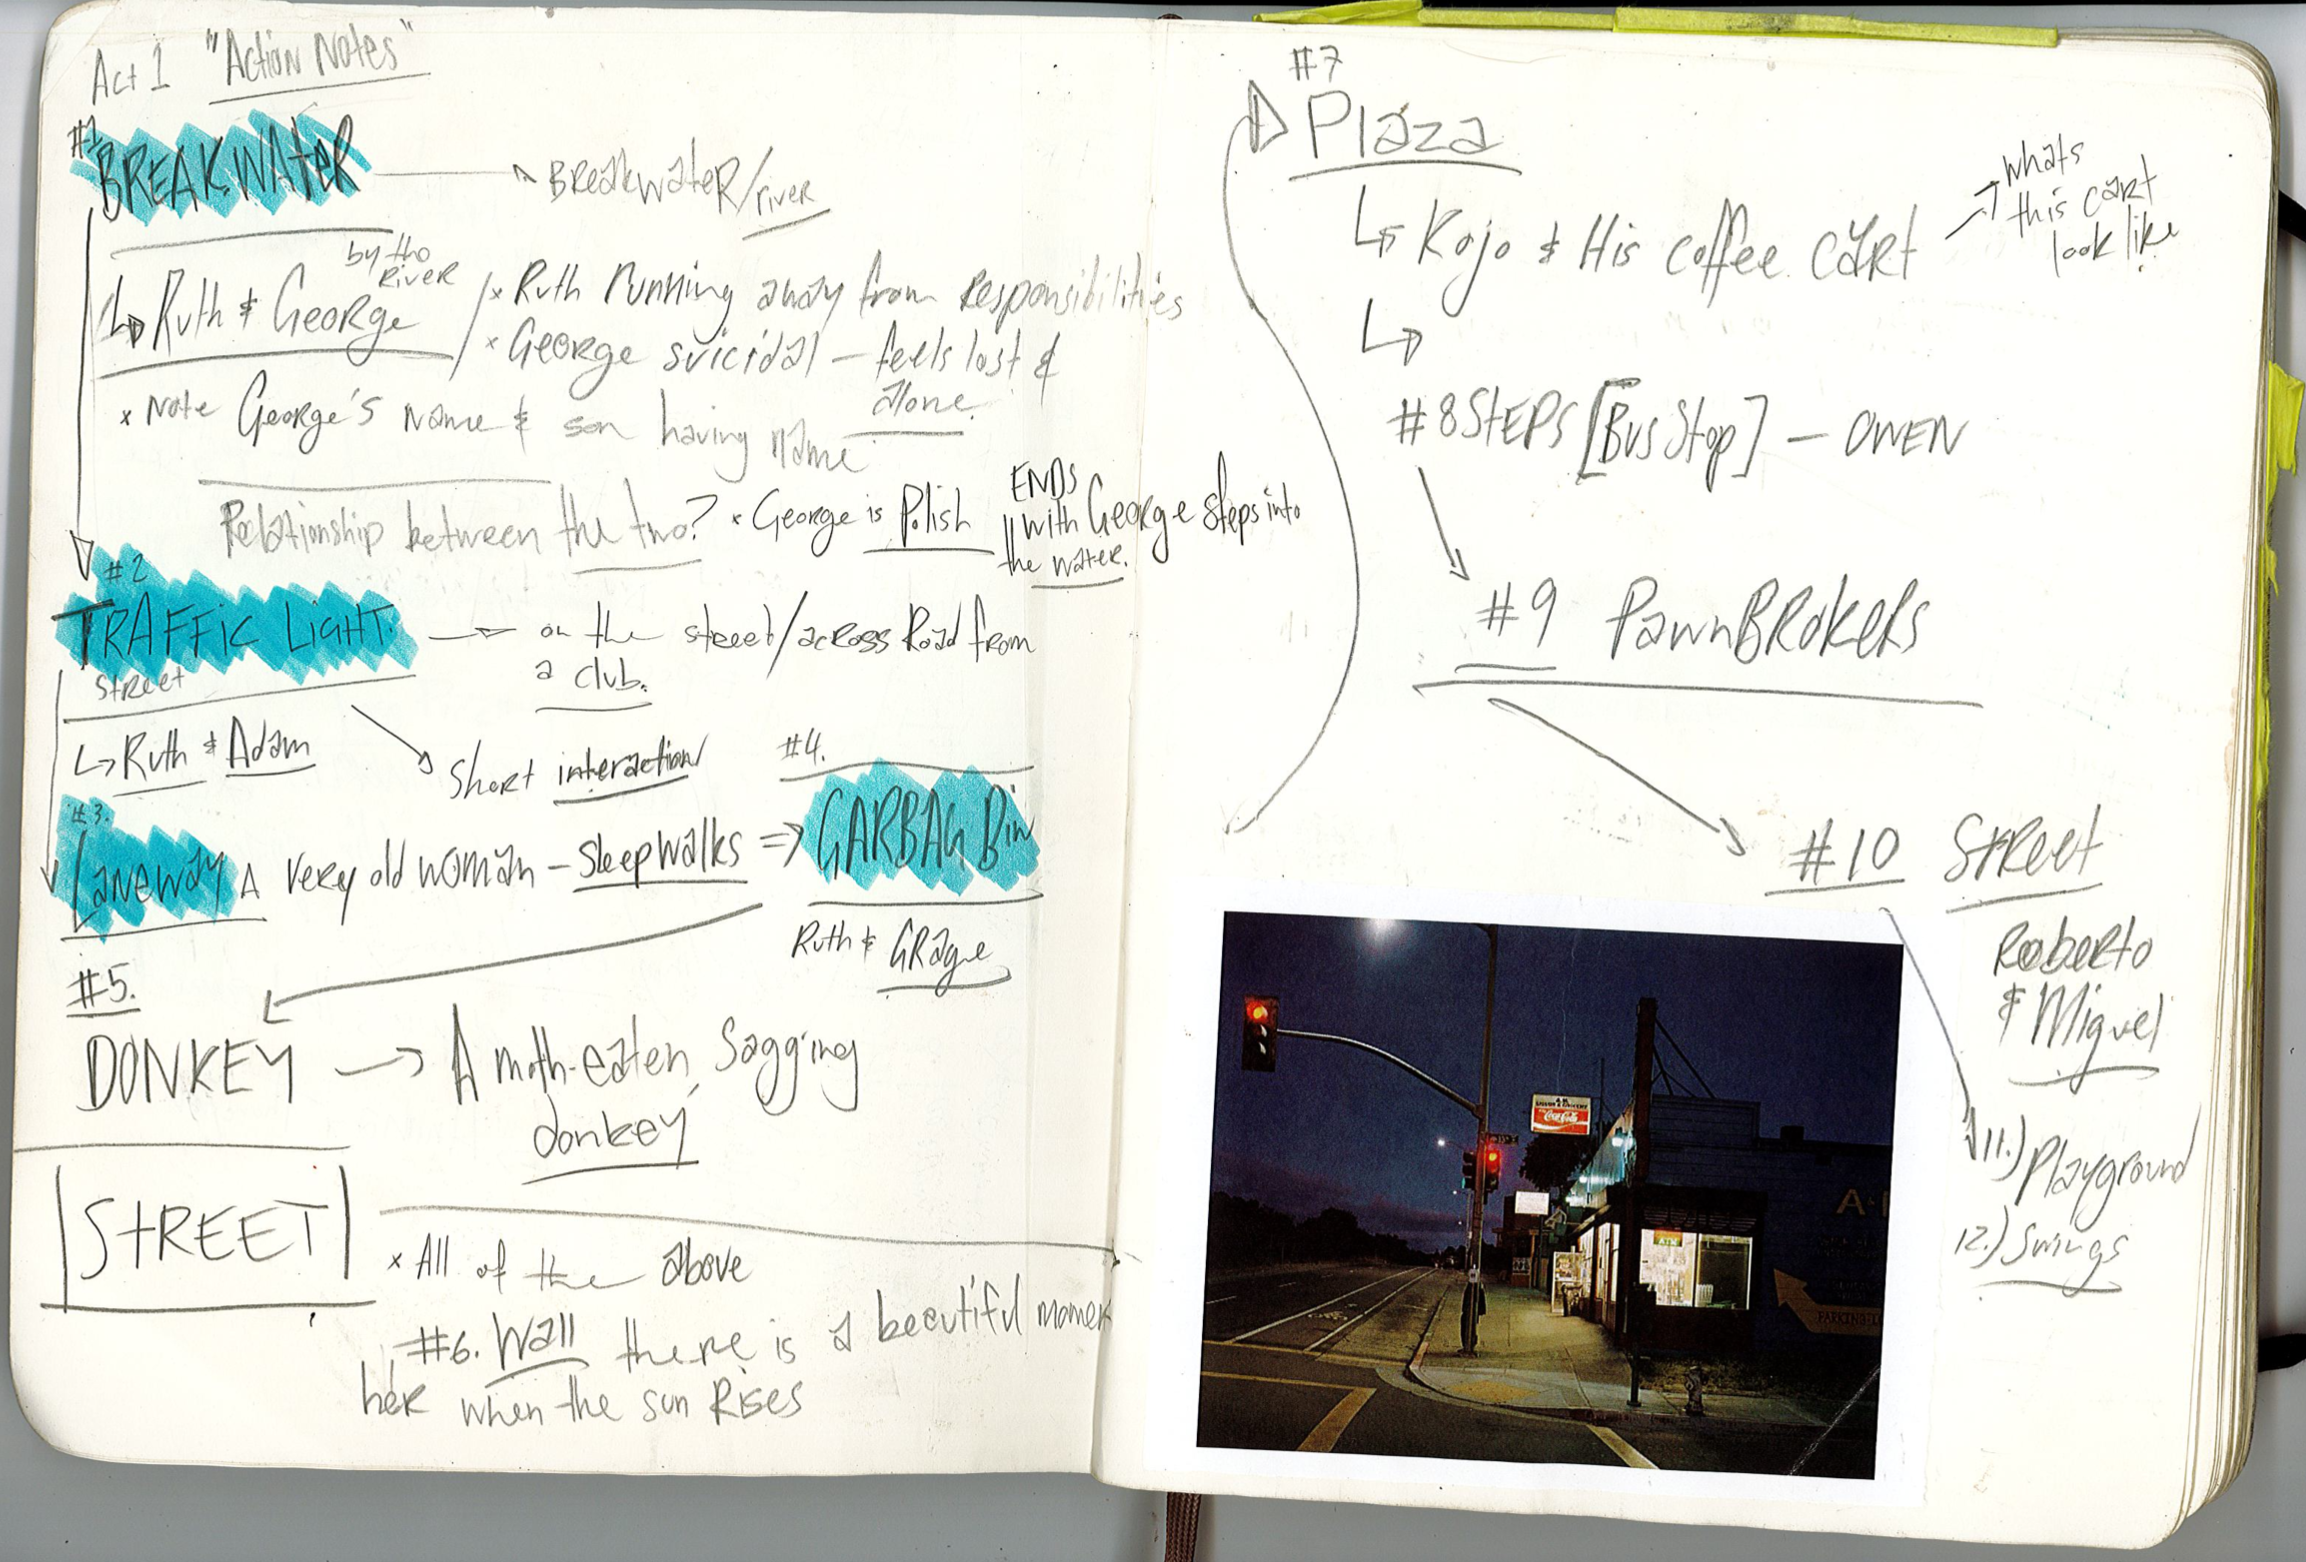 Act 1 "Action Notes"
#1
BREAKWATER
Breakwater/river
by the
River
Ruth & George
× Ruth running away from Responsibilities
× George suicidal – feels lost &
alone
× note George's name & son having name
Relationship between the two?
× George is Polish
ENDS
with George steps into
the water.
#2
TRAFFIC LIGHT.
on the street/across Road from
a club.
street
Ruth & Adam
Short interaction
#3.
Laneway
A very old woman – sleepwalks
#4.
GARBAG Bin
Ruth &
#5.
DONKEY
A moth-eaten, Sagging
donkey
STREET
× All of the above
#6. Wall there is a beautiful moment
her when the sun Rises
#7
Plaza
Kojo & His coffee cart
whats
this cart
look like
#8 STEPS [Bus Stop] – OWEN
#9 PawnBRokers
#10 Street
Roberto
& Miguel
11.) Playground
12.) Swings
LIQUOR & GROCERY
Coca-Cola
A-
PARKING